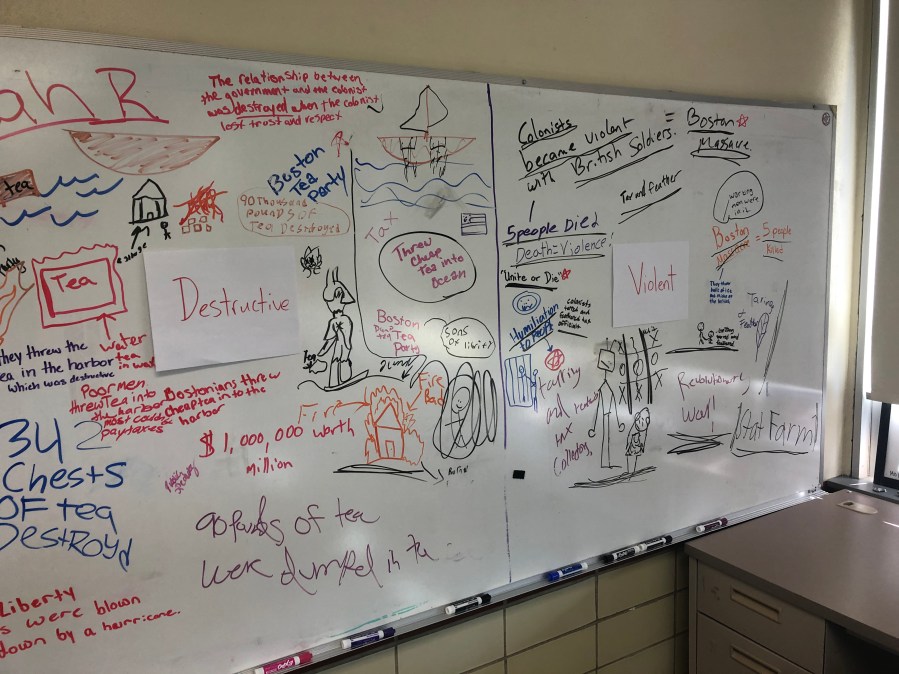 ah R
The relationship between
the government and the colonist
was destroyed when the colonist
lost trust and respect
tea
Boston
Tea
Party
90 Thousand
pounds of
Tea Destroyed
Tea
Destructive
Threw
Cheap
Tea into
Ocean
Boston
Tea
Party
Sons
of
water
tea
They threw the
tea in the harbor
which was destructive
Poor men
threw tea into
the harbor
most could
pay taxes
Bostonians threw
cheap tea in to the
harbor
Fire
Fire
Bad
342
Chests
OF tea
Destroyd
$1,000,000 worth
million
of tea
were dumped in the
Liberty
s were blown
down by a hurricane.
Colonists
became violent
with British Soldiers.
= Boston
Massacre
Tar and feather
working
men were
5 people Died
Death=Violence!
"Unite or Die"
Violent
Boston
= 5 people
killed
Humiliation
colonists
tared and
feathered tax
officials
Taring
and
tax
collectors
Revolutionare
war!
Stat Farm